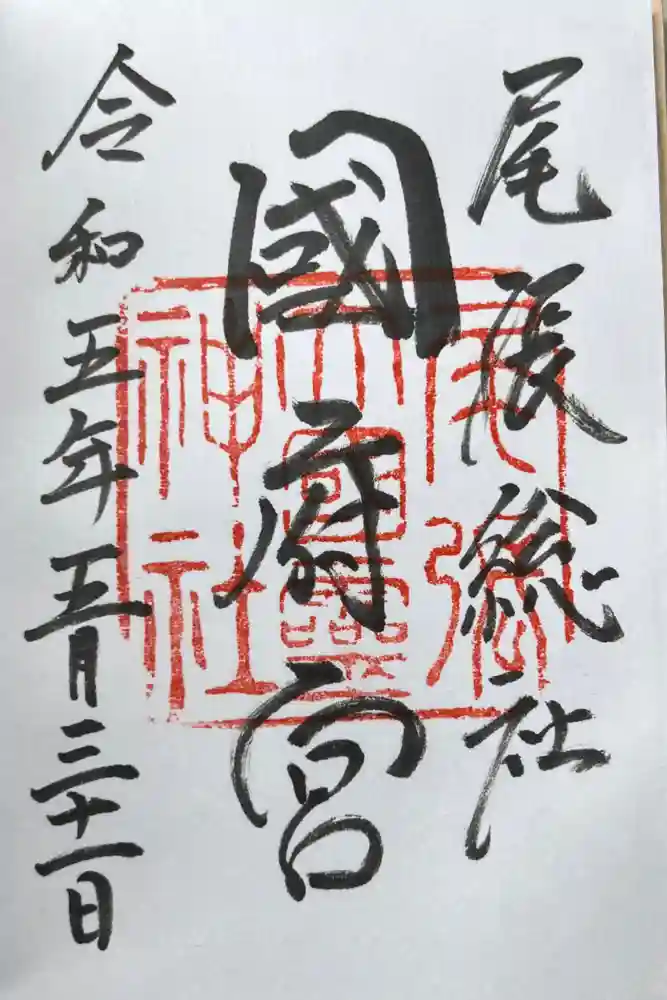 尾張総社
國府宮
令和五年五月三十一日
尾張
大國霊
神社